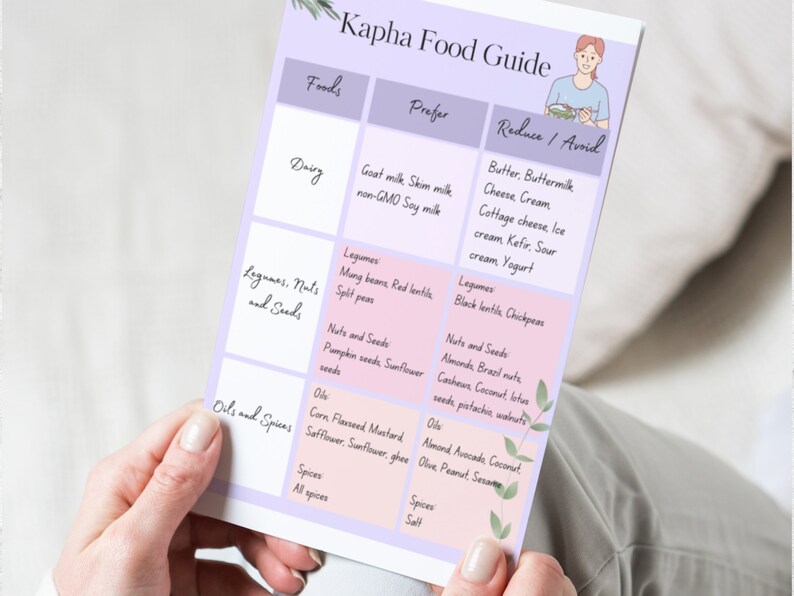 Kapha Food Guide
Foods
Prefer
Reduce / Avoid
Dairy
Goat milk, Skim milk
non-GMO Soy milk
Butter, Buttermilk,
Cheese, Cream,
Cottage cheese, Ice
cream, Kefir, Sour
cream, Yogurt
Legumes, Nuts
and Seeds
Legumes:
Mung beans, Red lentils,
Split peas
Nuts and Seeds:
Pumpkin seeds, Sunflower
seeds
Legumes:
Black lentils, Chickpeas
Nuts and Seeds:
Almonds, Brazil nuts,
Cashews, Coconut, lotus
seeds, pistachio, walnuts
Oils and Spices
Oils:
Corn, Flaxseed, Mustard,
Safflower, Sunflower, ghee
Spices:
All spices
Oils:
Almond, Avocado, Coconut,
Olive, Peanut, Sesame
Spices:
Salt